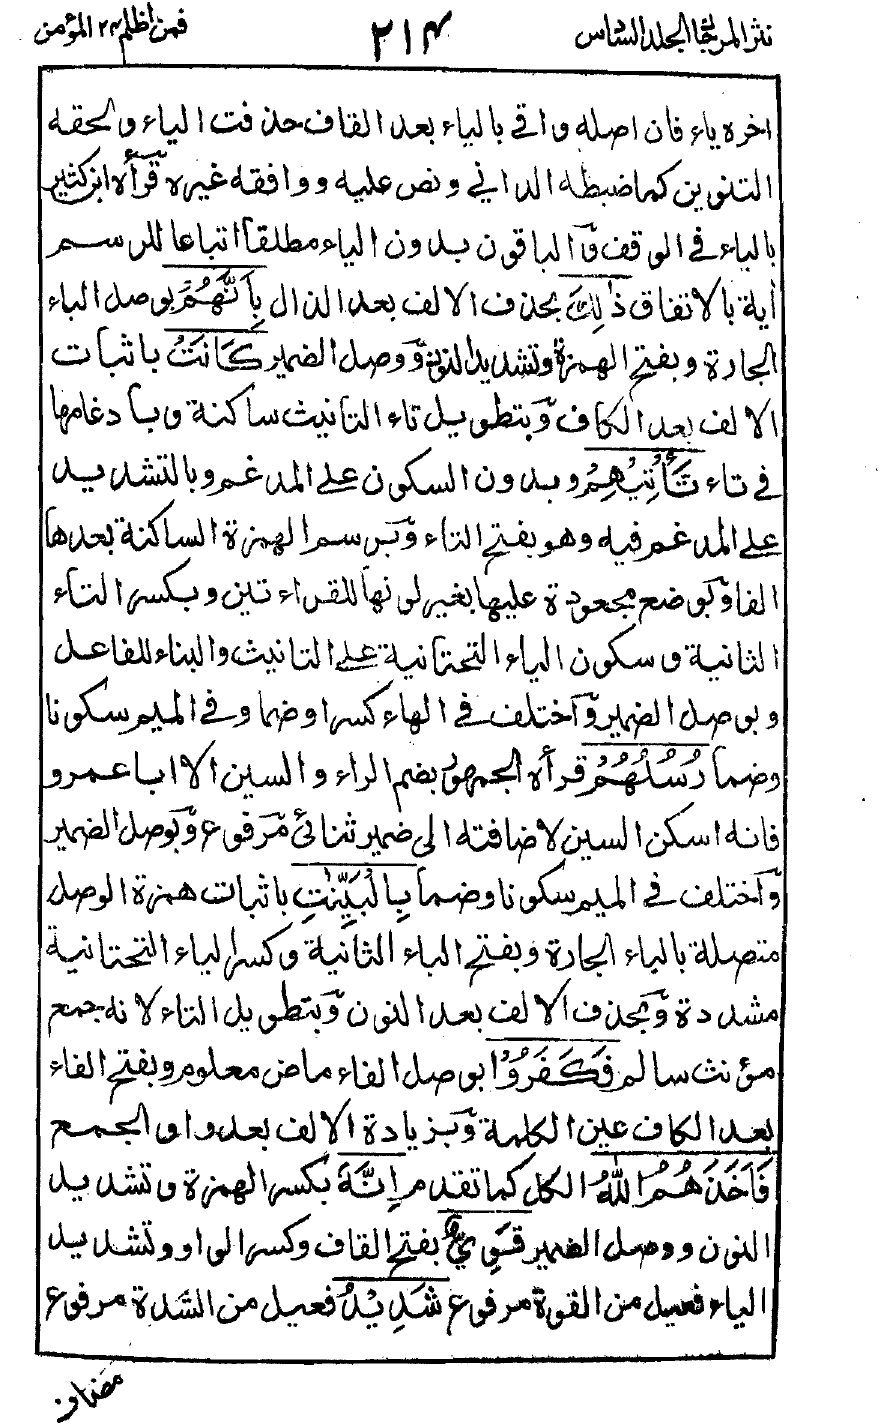 نثر المرجان الجلد السادس ٢١٤ فمن اظلم ٢٤ المؤمن
اخره ياء فان اصله واقي بالياء بعد القاف حذفت الياء والحقه
التنوين كما ضبطه الداني ونص عليه ووافقه غيره قرأه ابن كثير
بالياء في الوقف وٓالباقون بدون الياء مطلقا اتباعا للرسم
أية بالاتفاق ذٰلِكَ بحذف الالف بعد الذال بِأَنَّهُمْ بوصل الباء
الجارة وبفتح الهمزة وتشديد النون وٓوصل الضمير كَانَتْ باثبات
الالف بعد الكاف وٓبتطويل تاء التانيث ساكنة وبادغامها
في تاء تَأْتِيْهِمْ وبدون السكون على المدغم وبالتشديد
على المدغم فيه وهو بفتح التاء وٓبرسم الهمزة الساكنة بعدها
الفا وٓبوضع مجعودة عليها بغير لونها للقراءتين وبكسر التاء
الثانية وسكون الياء التحتانية على التانيث والبناء للفاعل
وبوصل الضمير وٓاختلف في الهاء كسرا وضما وفي الميم سكونا
وضما رُسُلُهُمْ قرأه الجمهور بضم الراء والسين الا ابا عمرو
فانه اسكن السين لاضافته الى ضمير ثنائي مرفوع وٓبوصل الضمير
وٓاختلف في الميم سكونا وضما بِالْبَيِّنٰتِ باثبات همزة الوصل
متصلة بالباء الجارة وبفتح الباء الثانية وكسر الياء التحتانية
مشددة وٓبحذف الالف بعد النون وٓبتطويل التاء لانه جمع
مؤنث سالم فَكَفَرُوْا بوصل الفاء ماض معلوم وبفتح الفاء
بعد الكاف عين الكلمة وٓبزيادة الالف بعد واو الجمع
فَاَخَذَهُمُ اللّٰهُ الكل كما تقدم اِنَّهٗ بكسر الهمزة وتشديد
النون ووصل الضمير قَوِيٌّ بفتح القاف وكسر الواو وتشديد
الياء فعيل من القوة مرفوع شَدِيْدُ فعيل من الشدة مرفوع
مضاف